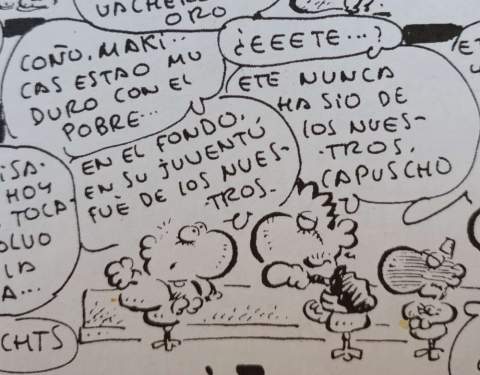 UACHE
ORO
COÑO, MAKI..
CAS ESTAO MU
DURO CON EL
POBRE...
EN EL FONDO,
EN SU JUVENTÚ
FUE DE LOS NUES-
TROS.
¿EEETE...?
ETE NUNCA
HA SIO DE
LOS NUES-
TROS,
CAPUSCHO
ISA.
HOY
TOCA
OLUO
LA
A...
CHTS
ET